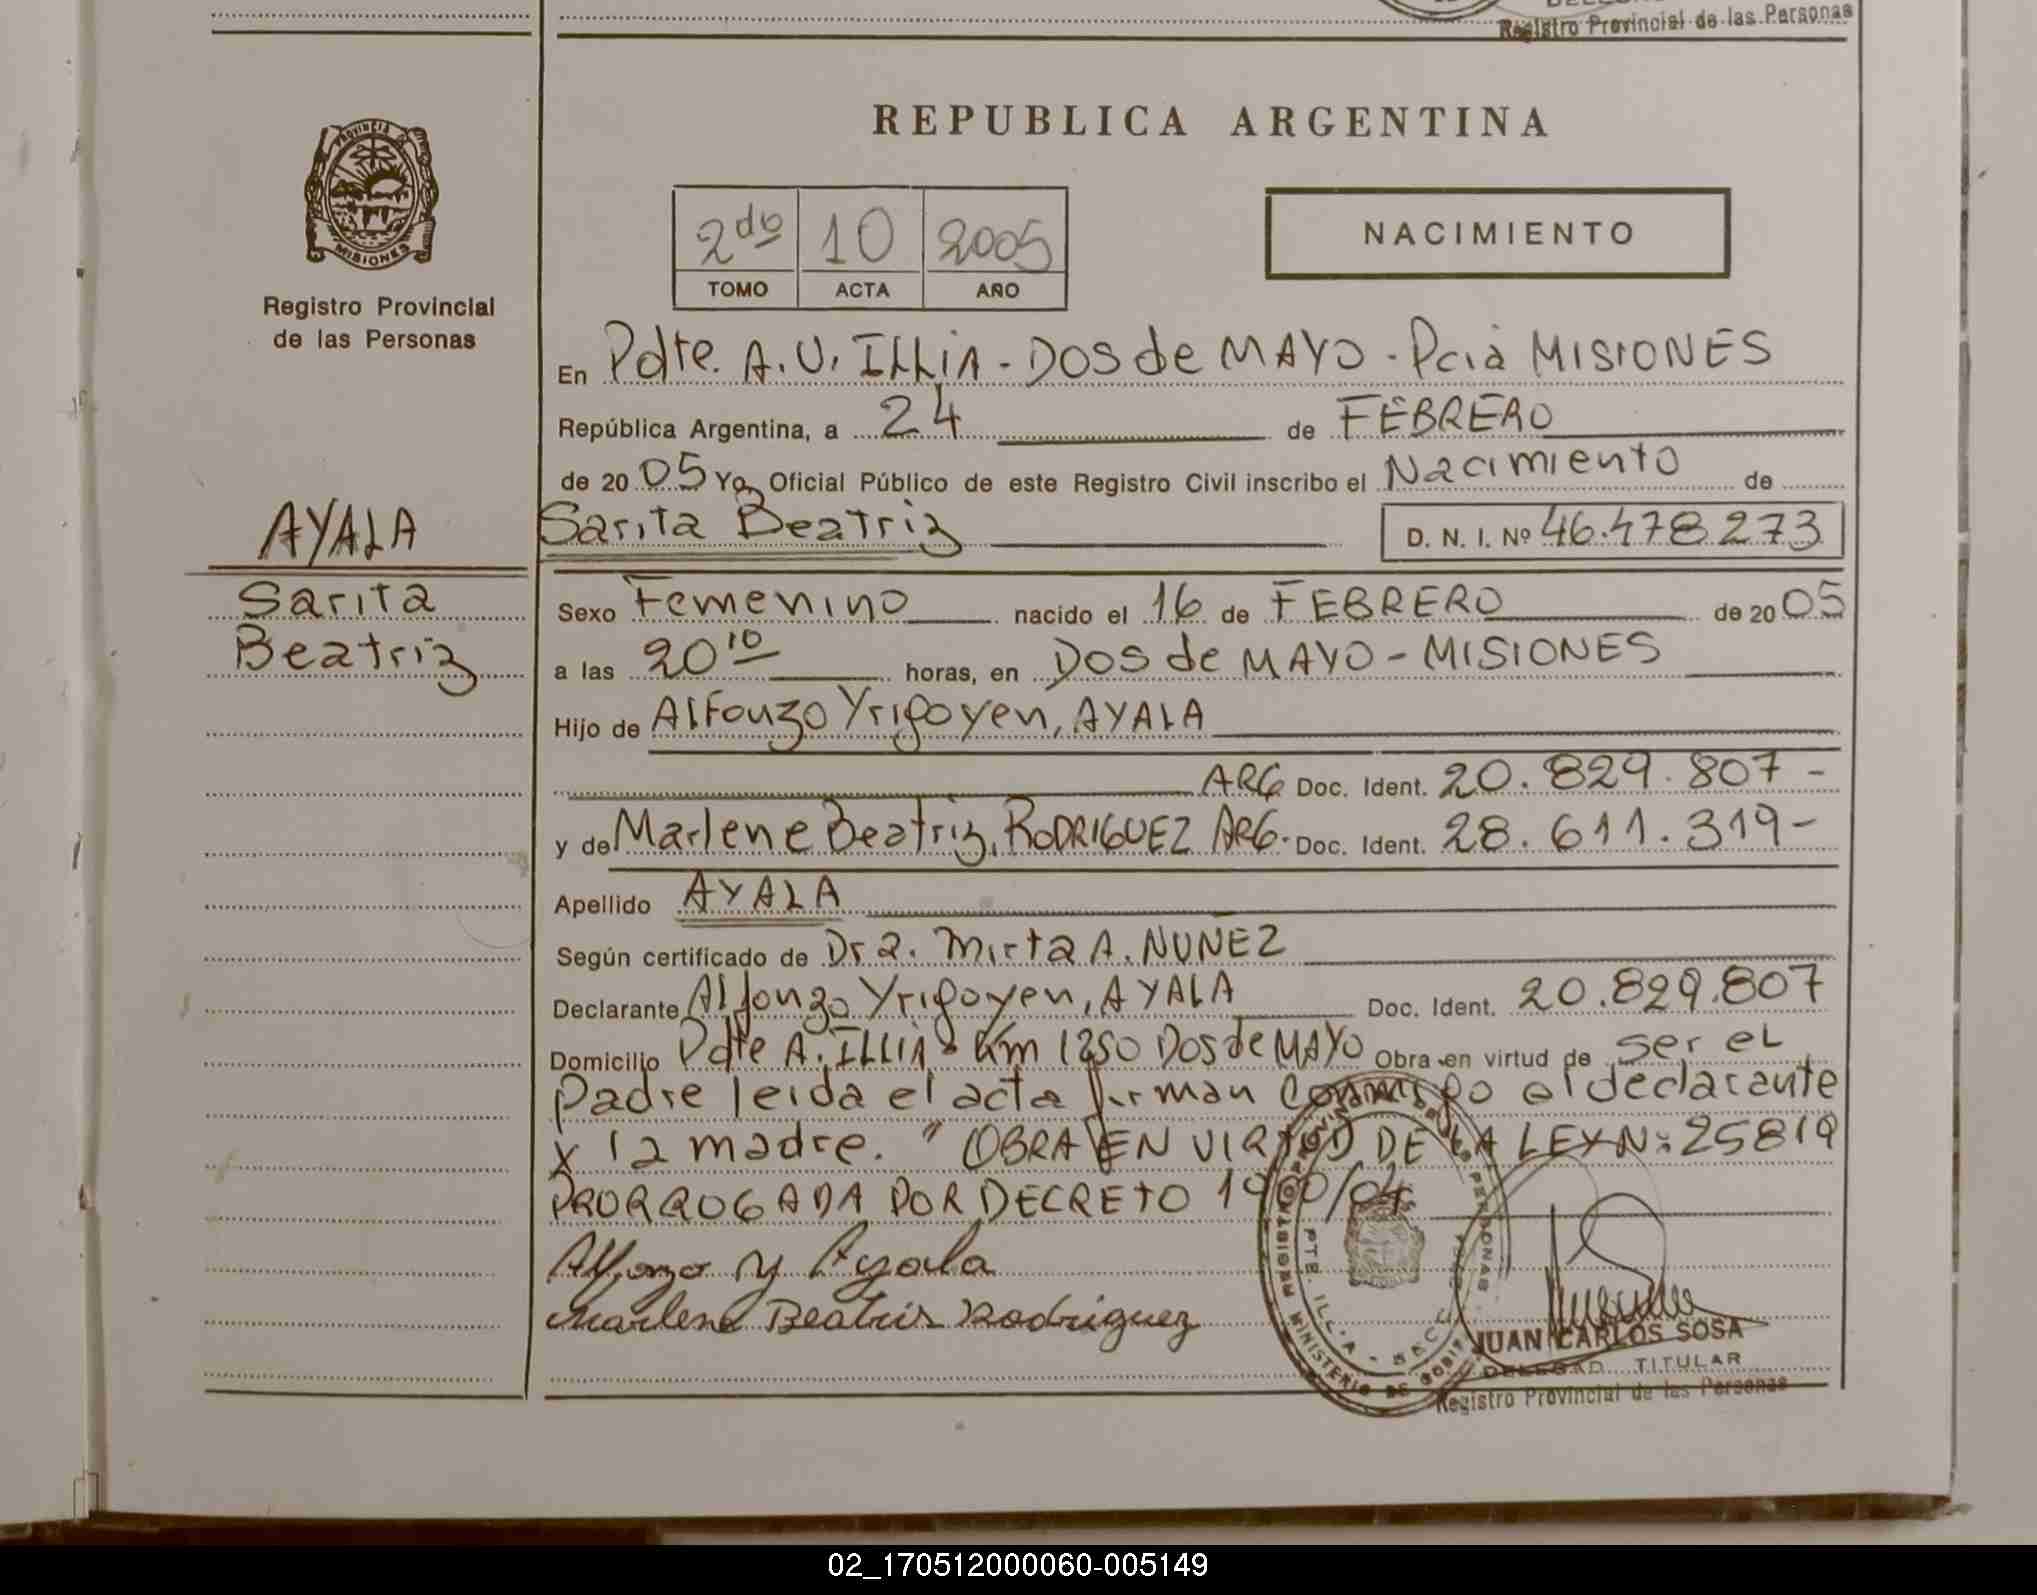 Registro Provincial de las Personas
PROVINCIA DE
MISIONES
Registro Provincial
de las Personas
AYALA
Sarita
Beatriz
REPUBLICA ARGENTINA
2do 10 2005
TOMO ACTA AÑO
NACIMIENTO
En Pdte. A. U. ILLIA - DOS de MAYO - Pcia MISIONES
República Argentina, a 24 de FEBRERO
de 20 05 Yo, Oficial Público de este Registro Civil inscribo el Nacimiento de
Sarita Beatriz D. N. I. Nº 46.478273
Sexo Femenino nacido el 16 de FEBRERO de 20 05
a las 20 10 horas, en DOS de MAYO - MISIONES
Hijo de Alfonzo Yrigoyen, AYALA
ARG Doc. Ident. 20.829.807 -
y de Marlene Beatriz, RODRIGUEZ ARG. Doc. Ident. 28.611.319 -
Apellido AYALA
Según certificado de Dra. Mirta A. NUNEZ
Declarante Alfonzo Yrigoyen, AYALA Doc. Ident. 20.829.807
Domicilio Pdte A. ILLIA - Km 1250 Dos de MAYO Obra en virtud de ser el
padre leida el acta firman conmigo el declarante
y la madre. " OBRA EN VIRTUD DE LA LEY N: 25819
PRORROGADA POR DECRETO
Alfonzo Y Ayala
Marlene Beatris Rodriguez
JUAN CARLOS SOSA
DELEGAD TITULAR
Registro Provincial de las Personas
02_170512000060-005149